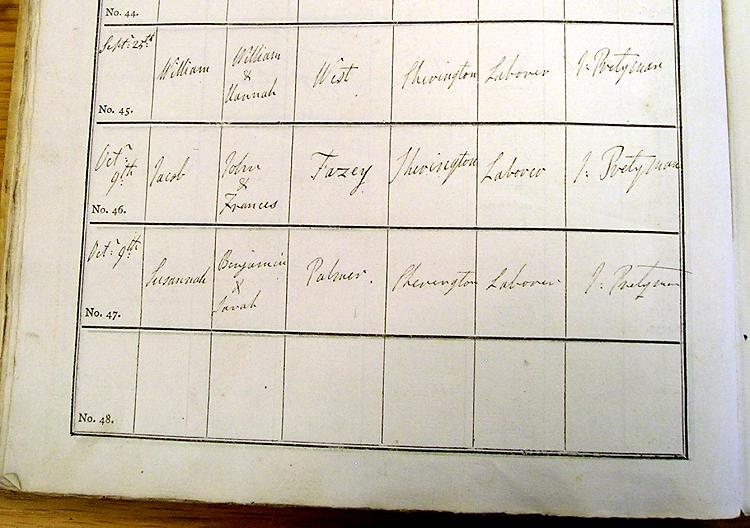 No. 44.
Septr. 25th William William & Hannah West Shevington Laborer J: Pretyman
No. 45.
Octr. 9th Jacob John & Frances Fazey Shevington Laborer J: Pretyman
No. 46.
Octr. 9th Susannah Benjamin & Sarah Palmer. Shevington Laborer J: Pretyman
No. 47.
No. 48.